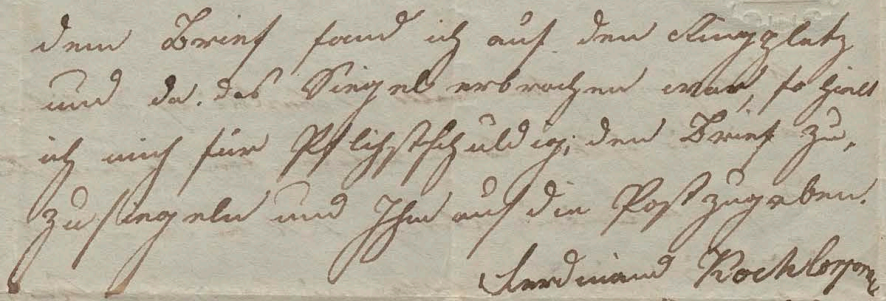 dem Brief fand ich auf den Ringplatz
und da das Siegel erbrochen war, so hielt
ich mich für Pflichtschuldig, den Brief zu
zusiegeln und Ihm auf die Post zugeben.
Ferdinand